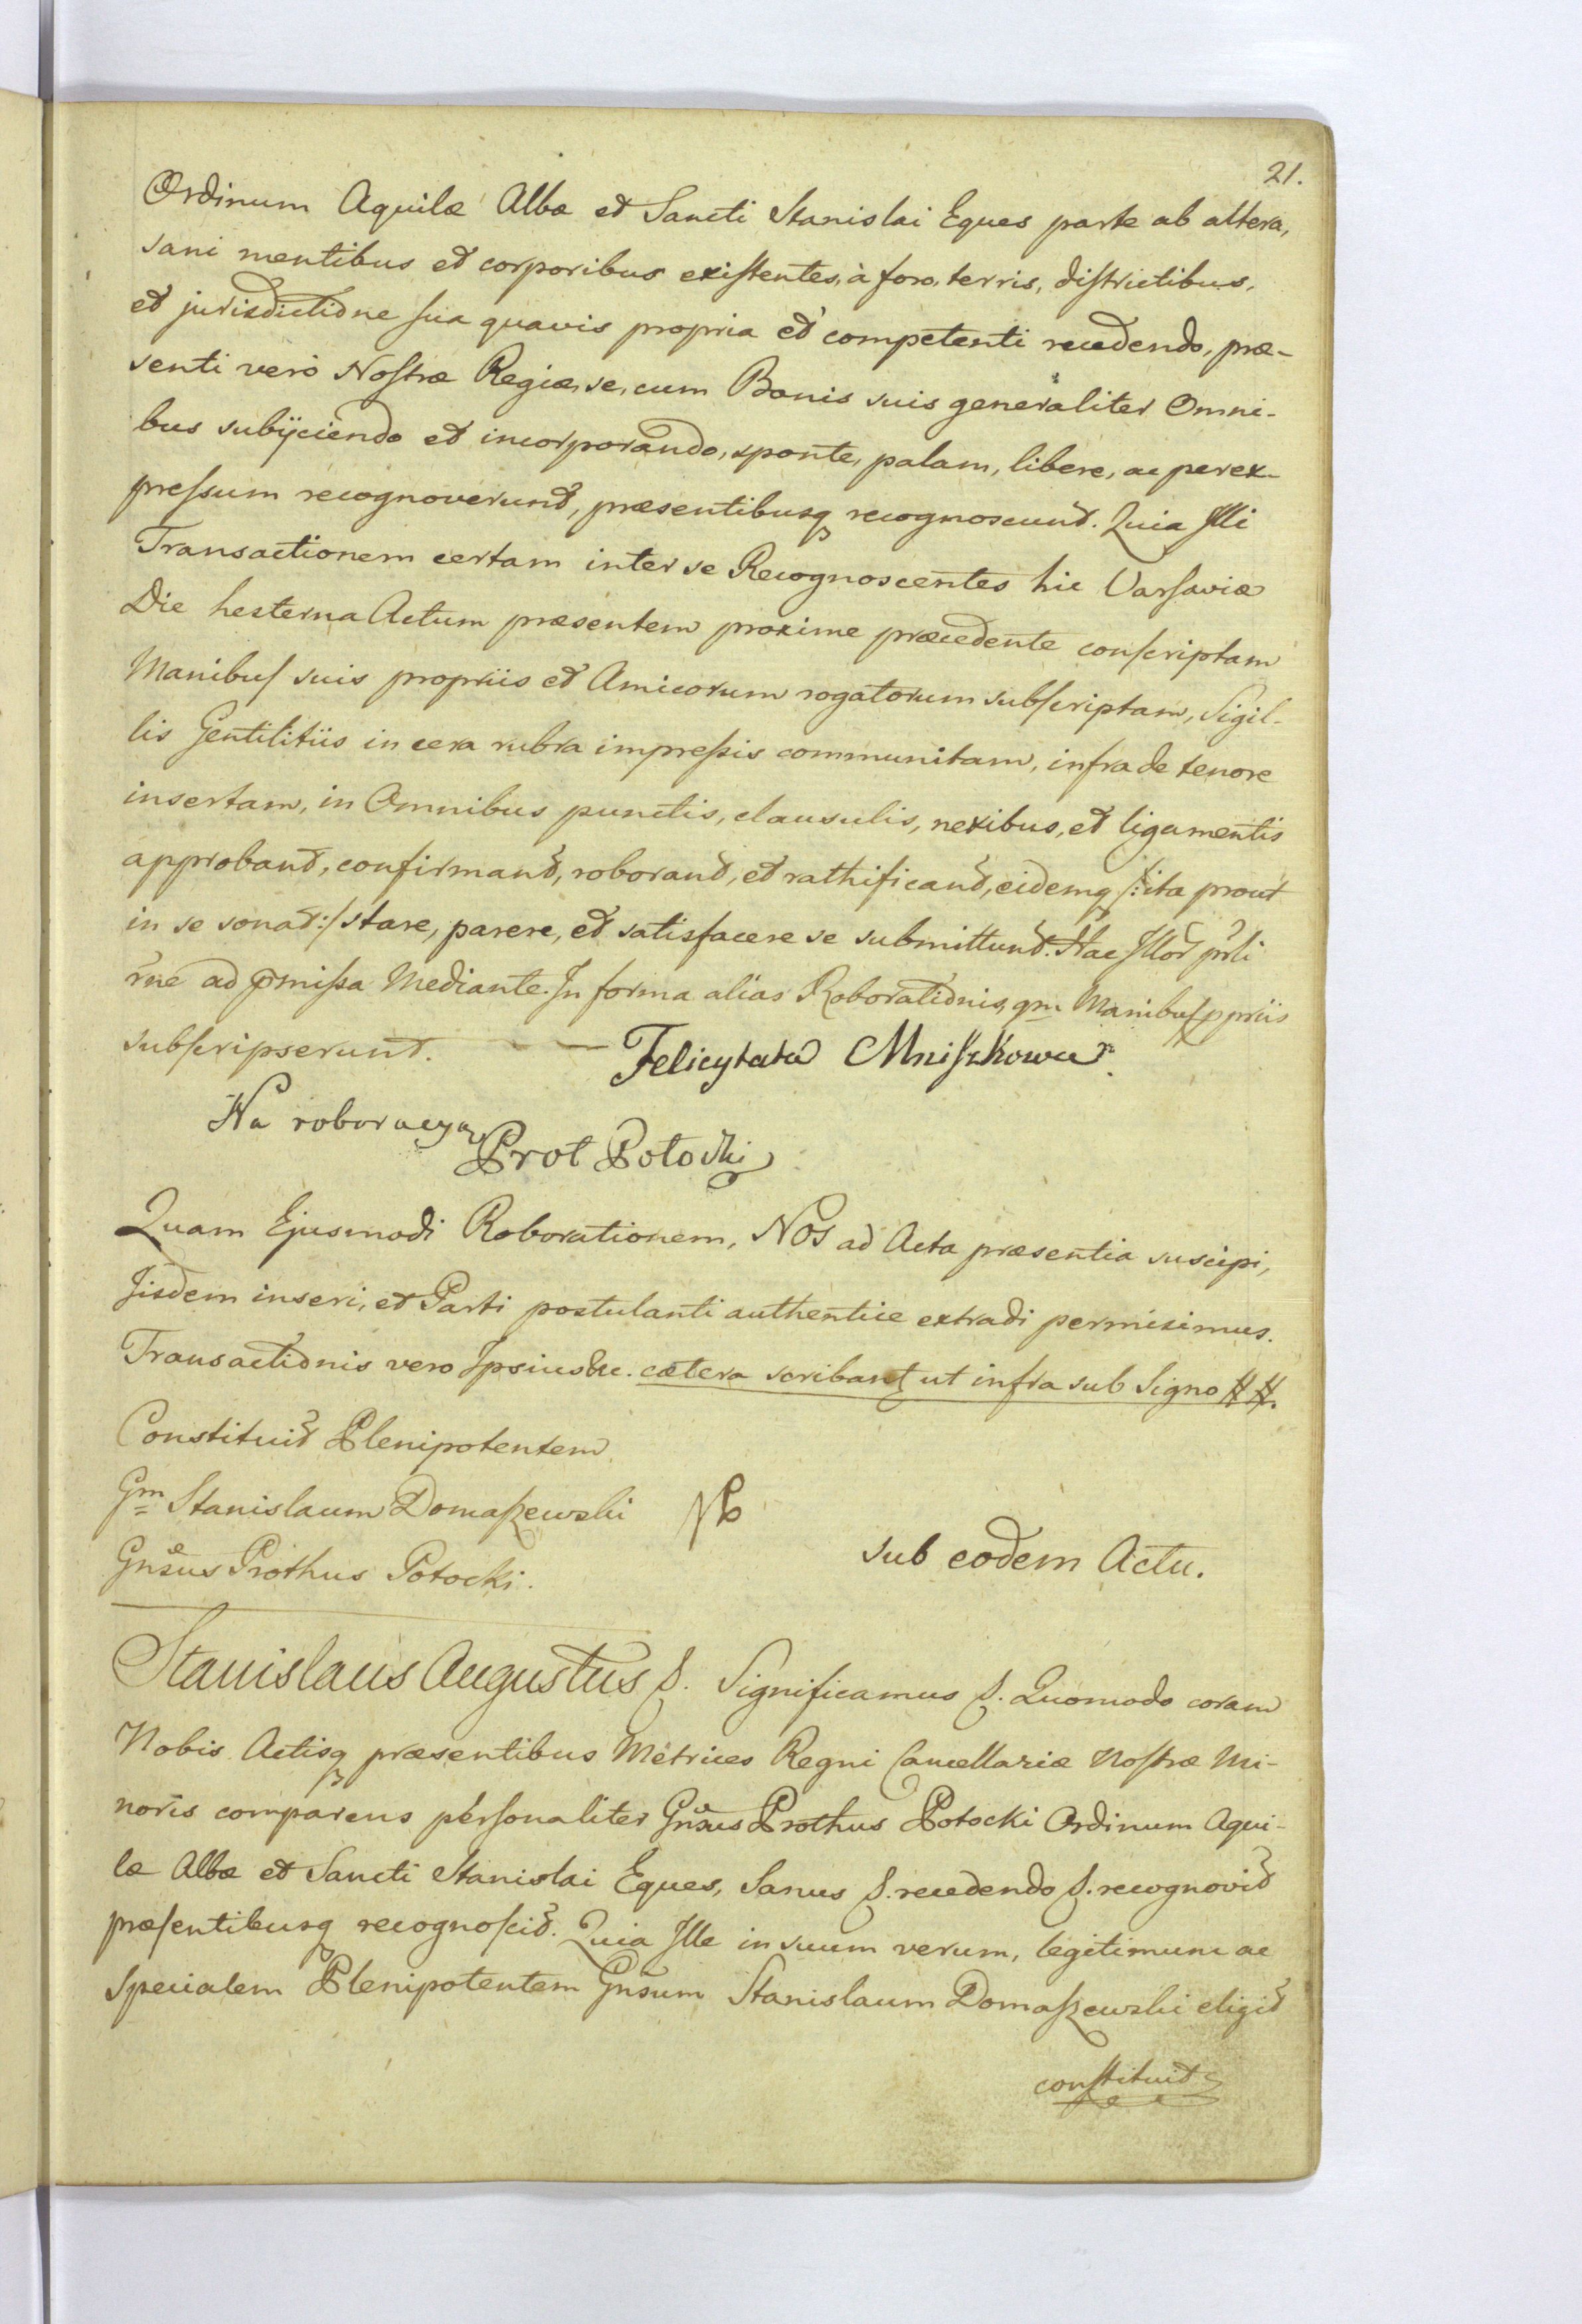 21.
Ordinum Aquilæ Albæ et Sancti Stanislai Eques parte ab altera,
sani mentibus et corporibus existentes, à foro, terris, districtibus,
et jurisdictione sua quavis propria et competenti recedendo, præ-
senti verò Nostræ Regiæ, se, cum Bonis suis generaliter Omni-
bus subijciendo et incorporando, sponte, palam, libere, ac per ex-
pressum recognoverunt, præsentibusq recognoscunt. Quia Illi
Transactionem certam inter se Recognoscentes hic Varsaviæ
Die hesterna Actum præsentem proxime præcedente conscriptam
Manibus suis propriis et Amicorum rogatorum subscriptam, Sigil-
lis Gentilitiis in cera rubra impressis communitam, infra de tenore
insertam, in Omnibus punctis, clausulis, nexibus, et ligamentis
approbant, confirmant, roborant, et rathificant, eidemq /: ita prout
in se sonat :/ stare, parere, et satisfacere se submittunt. Hac Illor prli
rne ad pmissa Mediante. In forma alias Roborationis, qm Manibus ppriis
subscripserunt. — — Felicytata Mniszkowa
Na roboracyą
Prot Potocki
Quam Ejusmodi Roborationem, Nos ad Acta præsentia suscipi,
Iisdem inseri, et Parti postulanti authentice extradi permisimus.
Transactionis vero Ipsius &c. cætera scribant ut infra sub Signo ##.
Constituit Plenipotentem
Gm Stanislaum Domaszewski
Gnsus Prothus Potocki.
sub eodem Actu.
Stanislaus Augustus &. Significamus &. Quomodo coram
Nobis Actisq præsentibus Metrices Regni Cancellariæ Nostræ Mi-
noris comparens personaliter Gnsus Prothus Potocki Ordinum Aqui-
læ Albæ et Sancti Stanislai Eques, Sanus &. recedendo &. recognovit
præsentibusq recognoscit. Quia Ille in suum verum, legitimum ac
specialem Plenipotentem Gnsum Stanislaum Domaszewski eligit
constituit